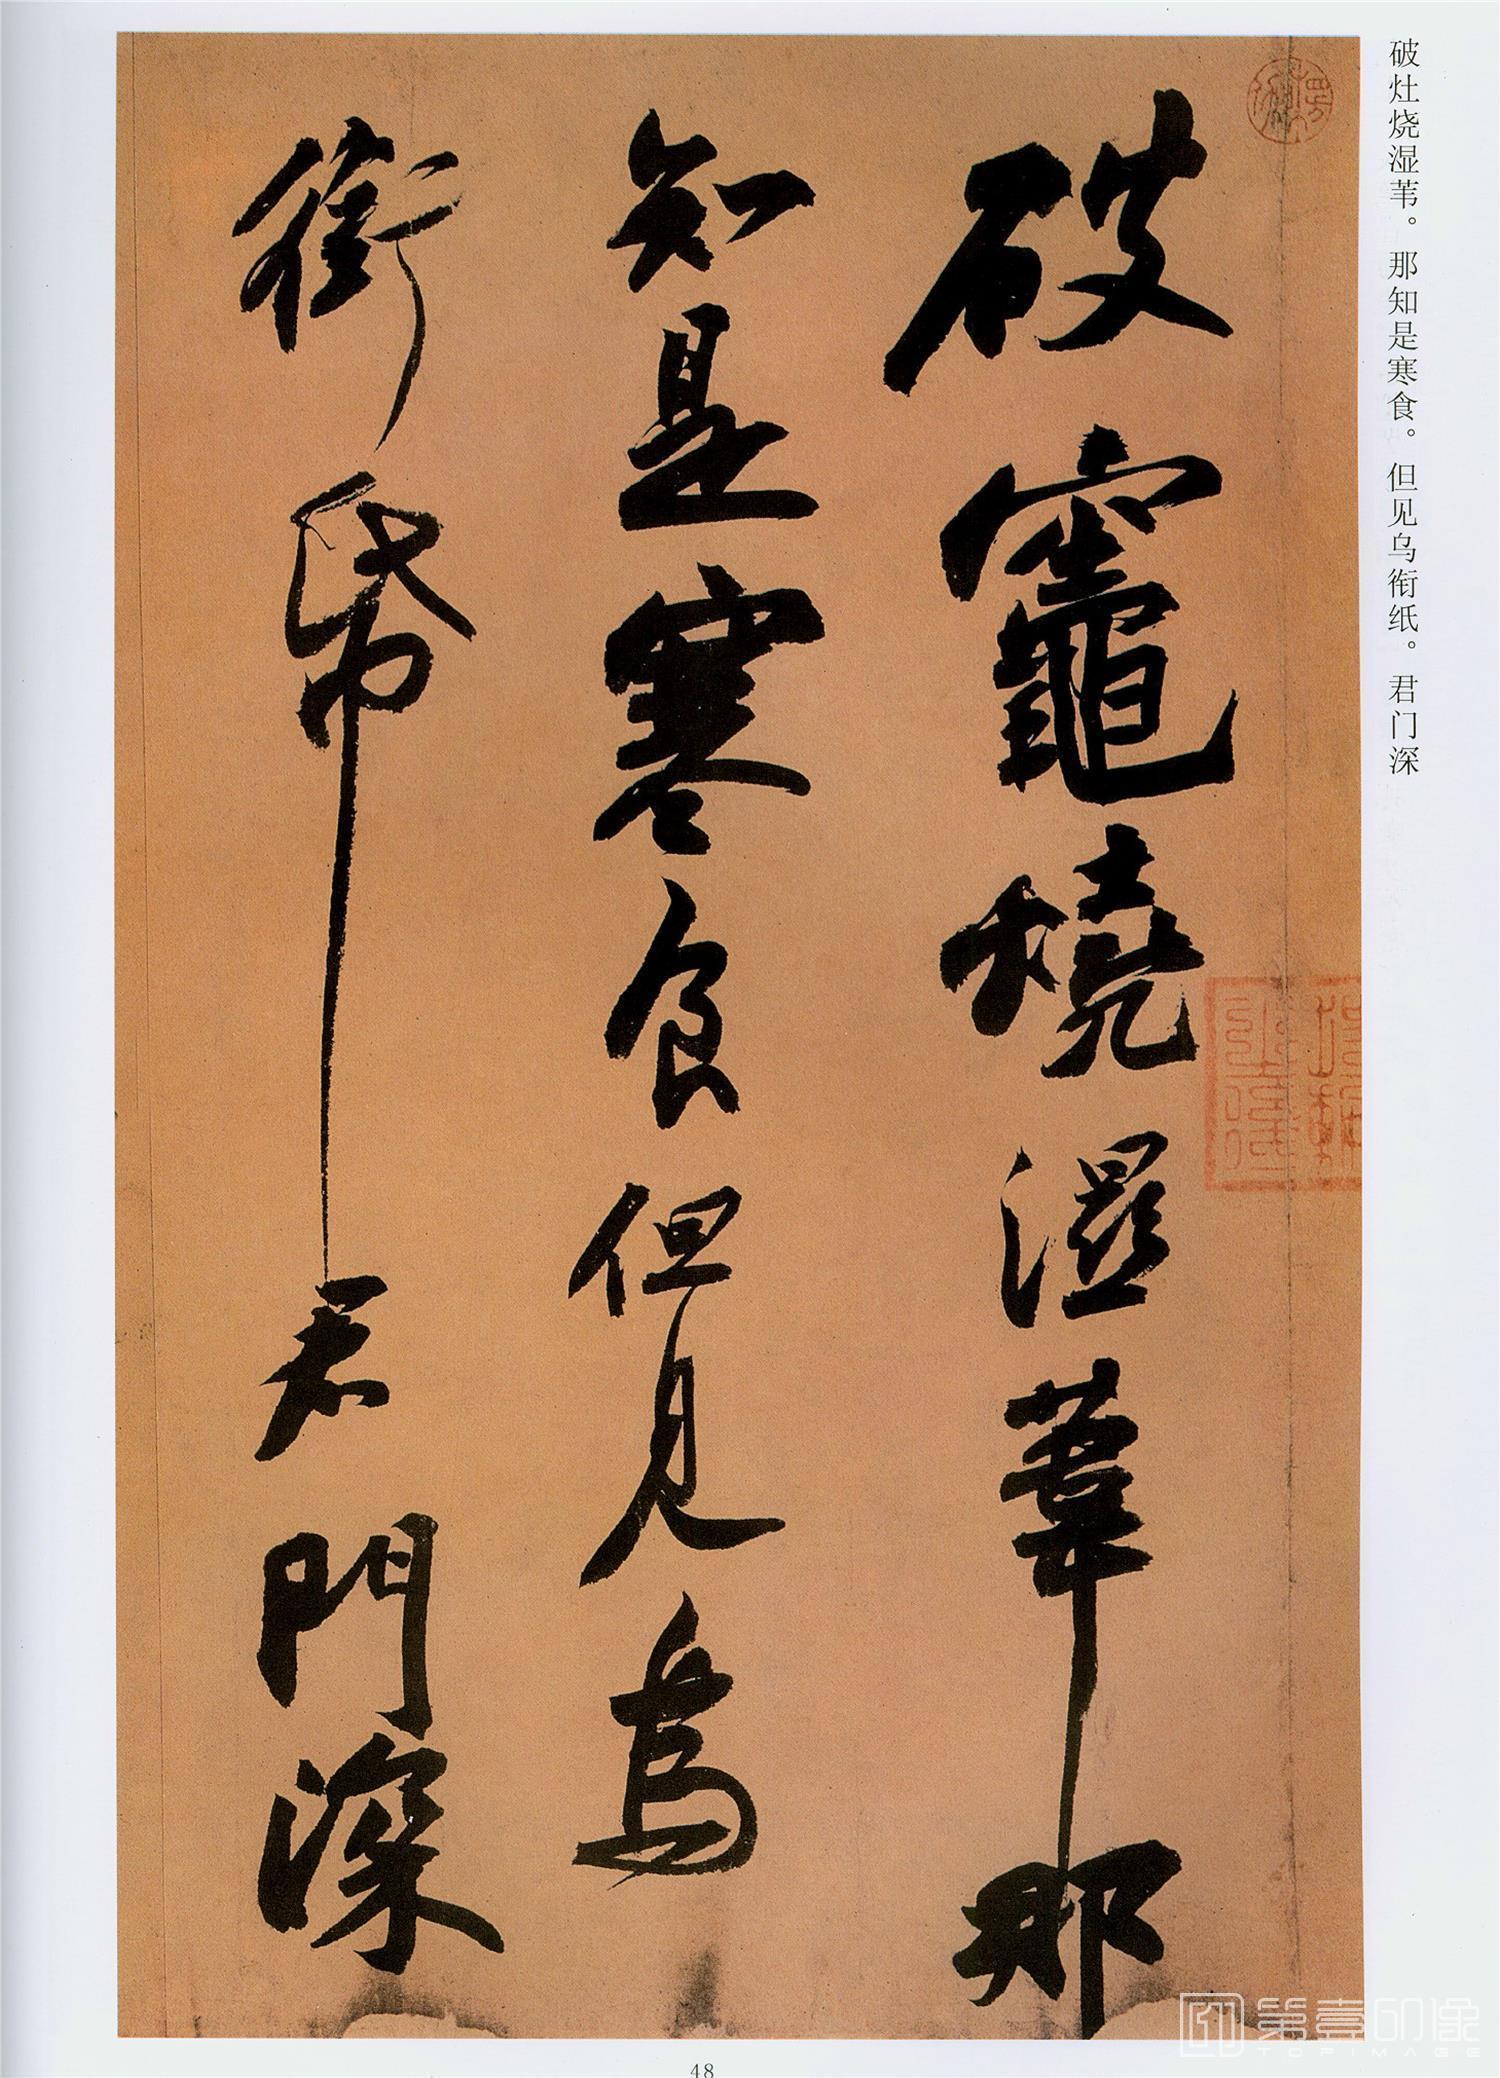 破灶烧湿苇。那知是寒食。但见乌衔纸。君门深
破竈燒濕葦那
知是寒食但見烏
銜帋君門深
48
第壹印像
TOPIMAGE